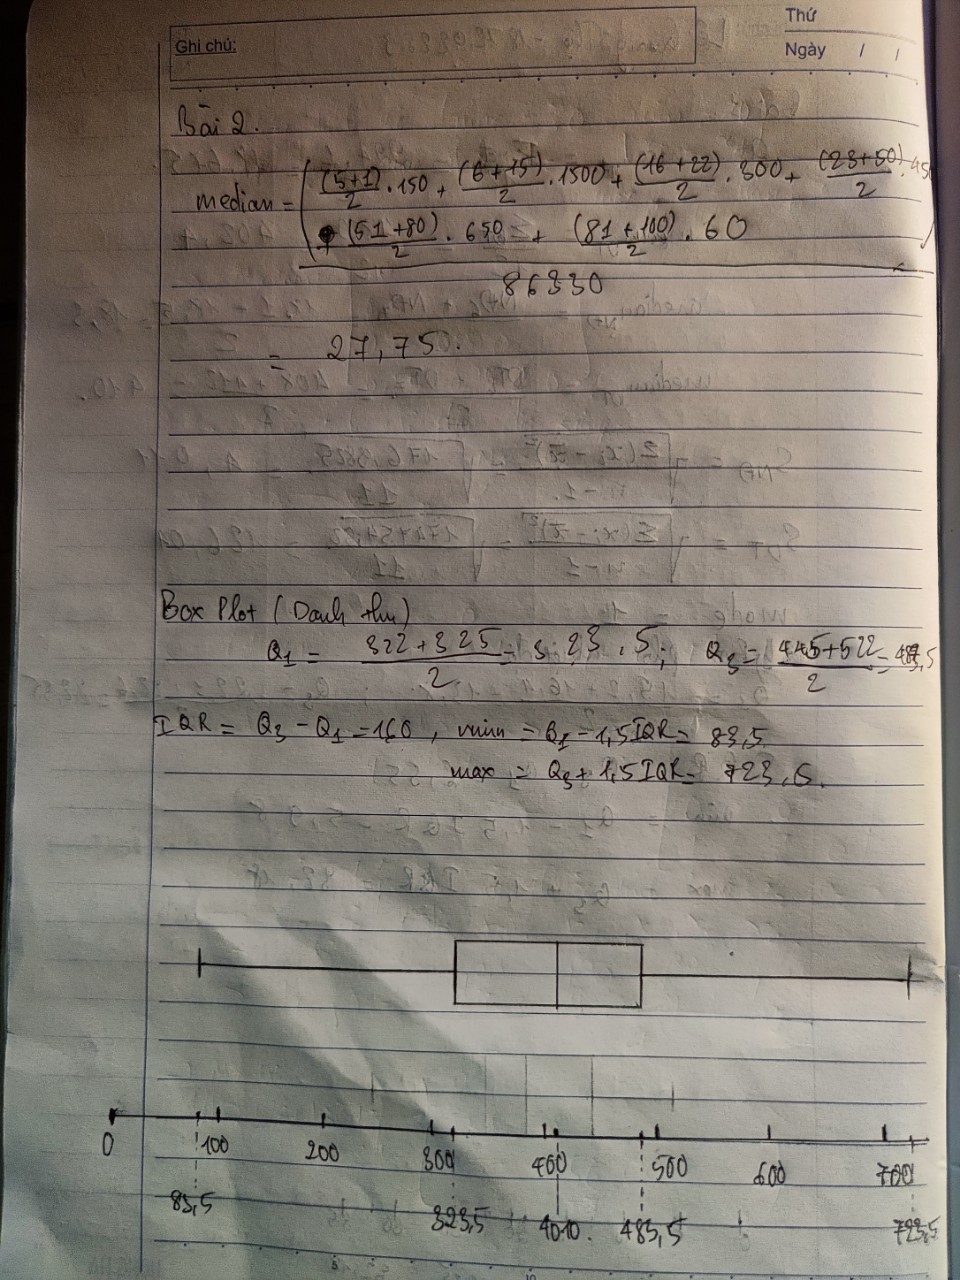 Thứ
Ghi chú:
Ngày / /
Bài 2.
median = ( (5+1)/2 . 150 + (6+15)/2 . 1500 + (16+22)/2 . 300 + (23+50)/2 . 450
+ (51+80)/2 . 650 + (81+100)/2 . 60 )
86330
= 27,750.
Box Plot (Doanh thu)
Q1 = (322+325)/2 = 323.5; Q3 = (445+522)/2 = 483,5
IQR = Q3 - Q1 = 160, min = Q1 - 1,5IQR = 83,5
max = Q3 + 1,5IQR = 723,5.
0 100 200 300 400 500 600 700
83,5 323,5 4010. 483,5 723,5